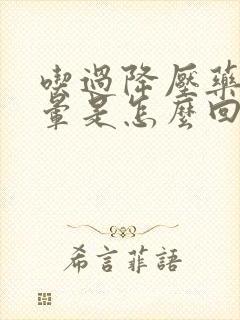 喫過降壓藥
暈是怎麼回
希言菲語